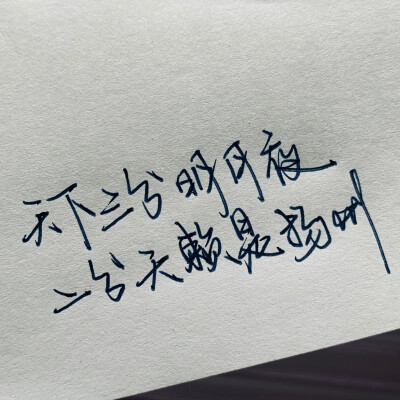 天下三分明月夜
二分天赖是扬州